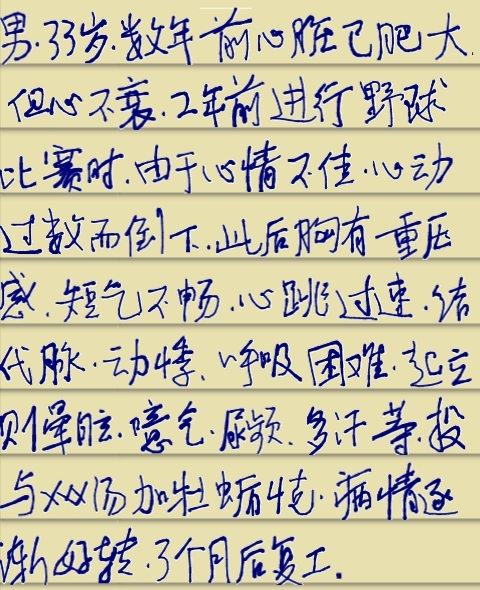 男.33岁.数年前心脏已肥大.
但心不衰.2年前进行野球
比赛时.由于心情不佳.心动
过数而倒下.此后胸有重压
感.短气不畅.心跳过速.结
代脉.动悸.呼吸困难.起立
则晕眩.噫气.尿频.多汗等.投
与XX汤加牡蛎4克.病情逐
渐好转.3个月后复工.